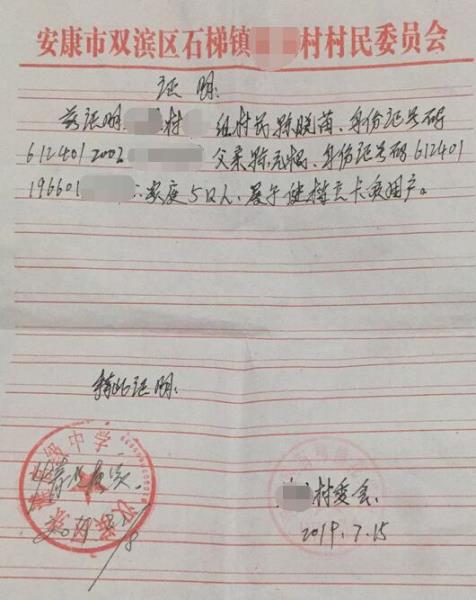 安康市双滨区石梯镇村村民委员会
证明
兹证明村组村民陈晓苗、身份证号码
6124012002父亲陈元、身份证号码612401
196601家庭5口人、属于建档立卡贫困户。
特此证明
中学
情况属实
村委会
2019.7.15